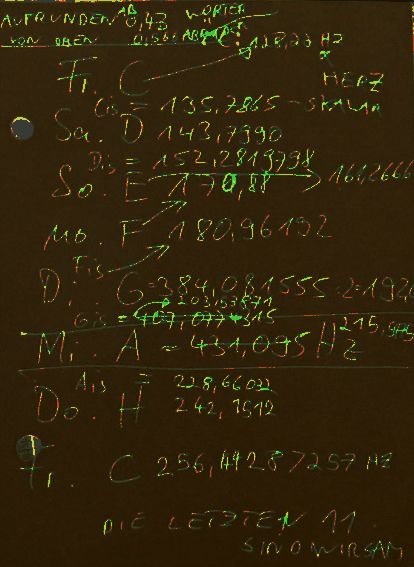 AUFRUNDEN AB 0,43 WÖRTER
VON OBEN
128,23 HZ
Fr. C
HERZ
Cis = 135,7865 - SKALAR
Sa. D 143,7990
Dis = 152,2819798
So. E 170,88 161,2666
Mo. F 180,96192
Fis
D. G = 384,081555 : 2 = 192,
203,53871
Gis = 407,077 315
Mi. A = 431,095 HZ 215,545
Ais = 228,6602
Do. H 242,1512
Fr. C 256,4928 7257 HZ
DIE LETZTEN 11
SIND WIRSAM